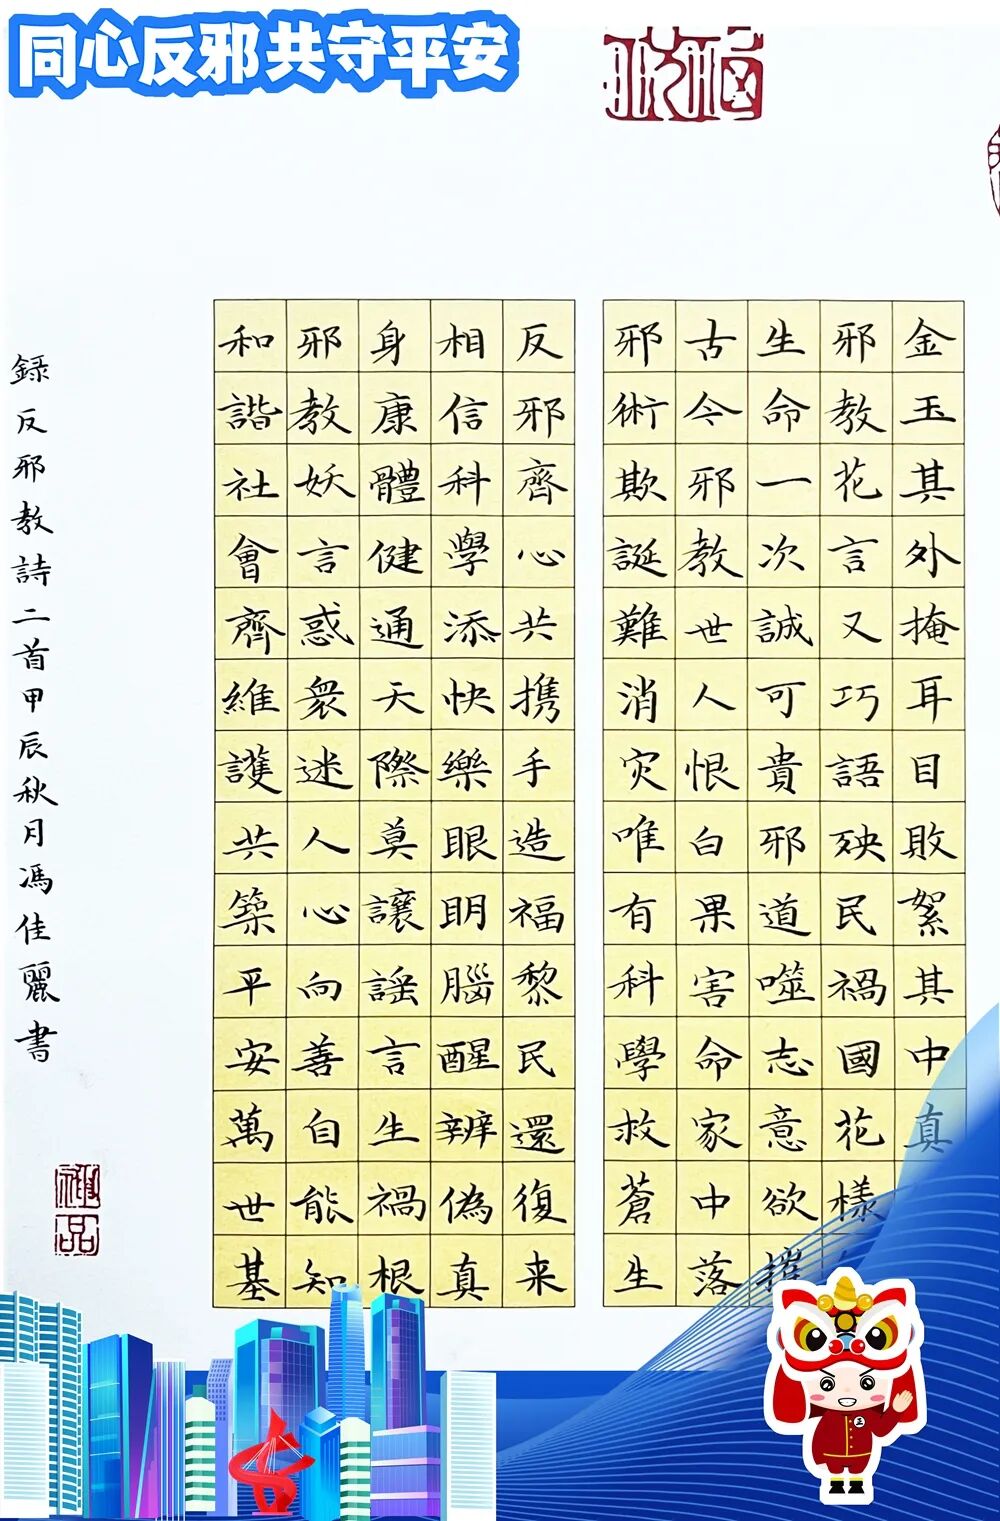 同心反邪共守平安
金玉其外掩耳目敗絮其中真
邪教花言又巧語殃民禍國花樣
生命一次誠可貴邪道噬志意欲摧
古今邪教世人恨白果害命家中落
邪術欺誕難消灾唯有科學救蒼生
反邪齊心共携手造福黎民還復来
相信科學添快樂眼明腦醒辨偽真
身康體健通天際莫讓謡言生禍根
邪教妖言惑衆迷人心向善自能知
和諧社會齊維護共築平安萬世基
録反邪教詩二首甲辰秋月馮佳麗書